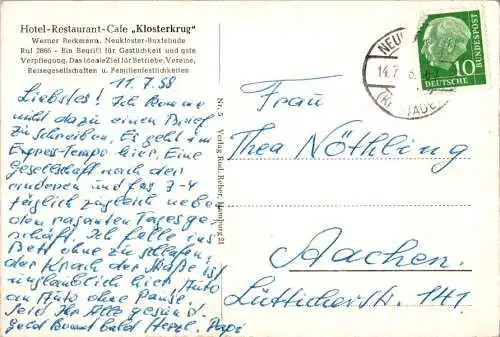 Hotel-Restaurant-Cafe „Klosterkrug"
Werner Beckmann, Neukloster-Buxtehude
Ruf 2866 - Ein Begriff für Gastlichkeit und gute
Verpflegung. Das ideale Ziel für Betriebe, Vereine,
Reisegesellschaften u. Familienfestlichkeiten
11.7.58
Liebstes! Ich komme
nicht dazu einen Brief
zu schreiben. Es geht im
Express-Tempo hier. Eine
Gesellschaft nach der
anderen und das 3-4
täglich zugleich nebe
dem rasanten Tagesge-
schäft. Ich falle ins
Bett ohne zu schlafen,
der Krach der Straße ist
unglaublich hier, Auto
an Auto ohne Pause.
Seid Ihr Alle gesund.
Geld kommt bald Herzl. Papi
Nr. 5 Verlag Rud. Reher, Hamburg 21
NEUK
14.7.
(KR. STADE)
DEUTSCHE
BUNDESPOST
10
Frau
Thea Nöthling
Aachen.
Lütticherstr. 141